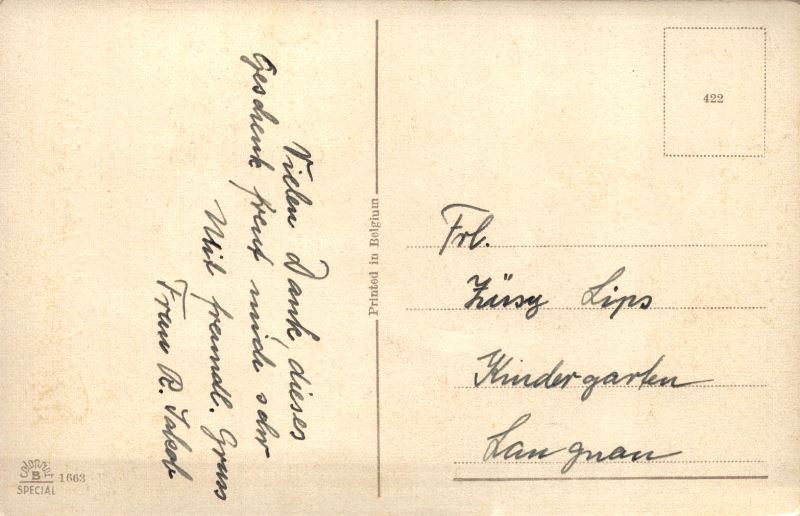 Vielen Dank, dieses
Geschenk freut mich sehr
Mit freundl. Gruss
Frau R. Jakob
Printed in Belgium
422
Frl.
Züsy Lips
Kindergarten
Langnau
COLORPRINT
B
SPECIAL
1663